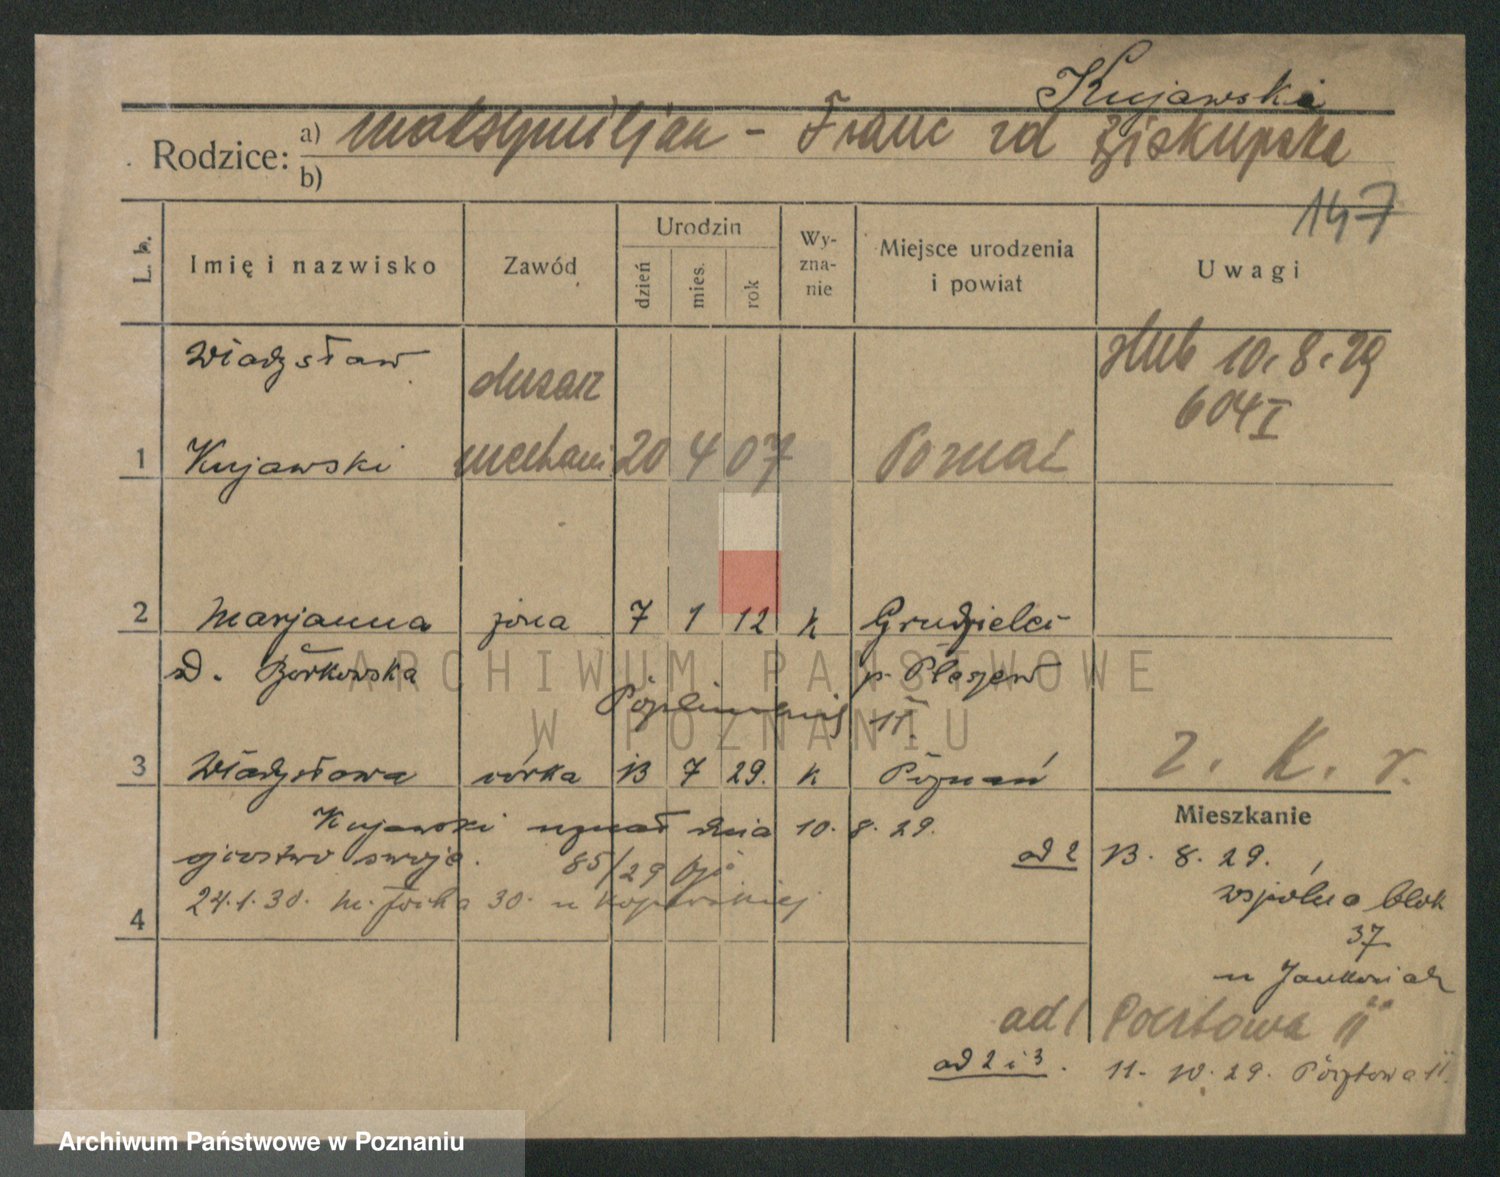 Kujawski
Rodzice: a) Maksymiljan - Franc zd Biskupska
b)
147
L. b. Imię i nazwisko Zawód Urodzin dzień mies. rok Wy-zna-nie Miejsce urodzenia i powiat Uwagi
Władysław ślusarz ślub 10. 8. 29
604 I
1 Kujawski mechani 20 4 07 Poznań
2 Marjanna żona 7 1 12 k Grudzielec
zd. Borkowska p. Pleszew
11.
3 Władysława córka 13 7 29. k Poznań
z. K. r.
Mieszkanie
Kujawski uznał dnia 10. 8. 29.
ojcostwo swoje. 85/29
ad 2 13. 8. 29.
wspólna blok
37
4 24.1.30. 30. u
u
ad 1 Pocztowa 11
ad 2 i 3. 11. 10. 29. Pocztowa 11.
ARCHIWUM PAŃSTWOWE
W POZNANIU
Archiwum Państwowe w Poznaniu